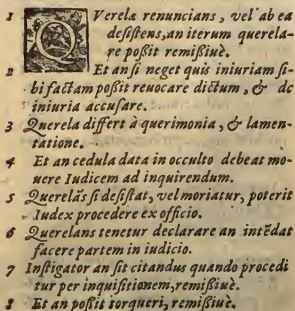 1 Querelæ renuncians, vel ab ea
desistens, an iterum querela-
re possit remissiuè.
2 Et an si neget quis iniuriam si-
bi factam possit reuocare dictum, & de
iniuria accusare.
3 Querela differt à querimonia, & lamen-
tatione.
4 Et an cedula data in occulto debeat mo-
uere Iudicem ad inquirendum.
5 Querelās si desistat, vel moriatur, poterit
Iudex procedere ex officio.
6 Querelans tenetur declarare an intēdat
facere partem in iudicio.
7 Instigator an sit citandus quando procedi
tur per inquisitionem, remissiuè.
8 Et an possit torqueri, remissiuè.